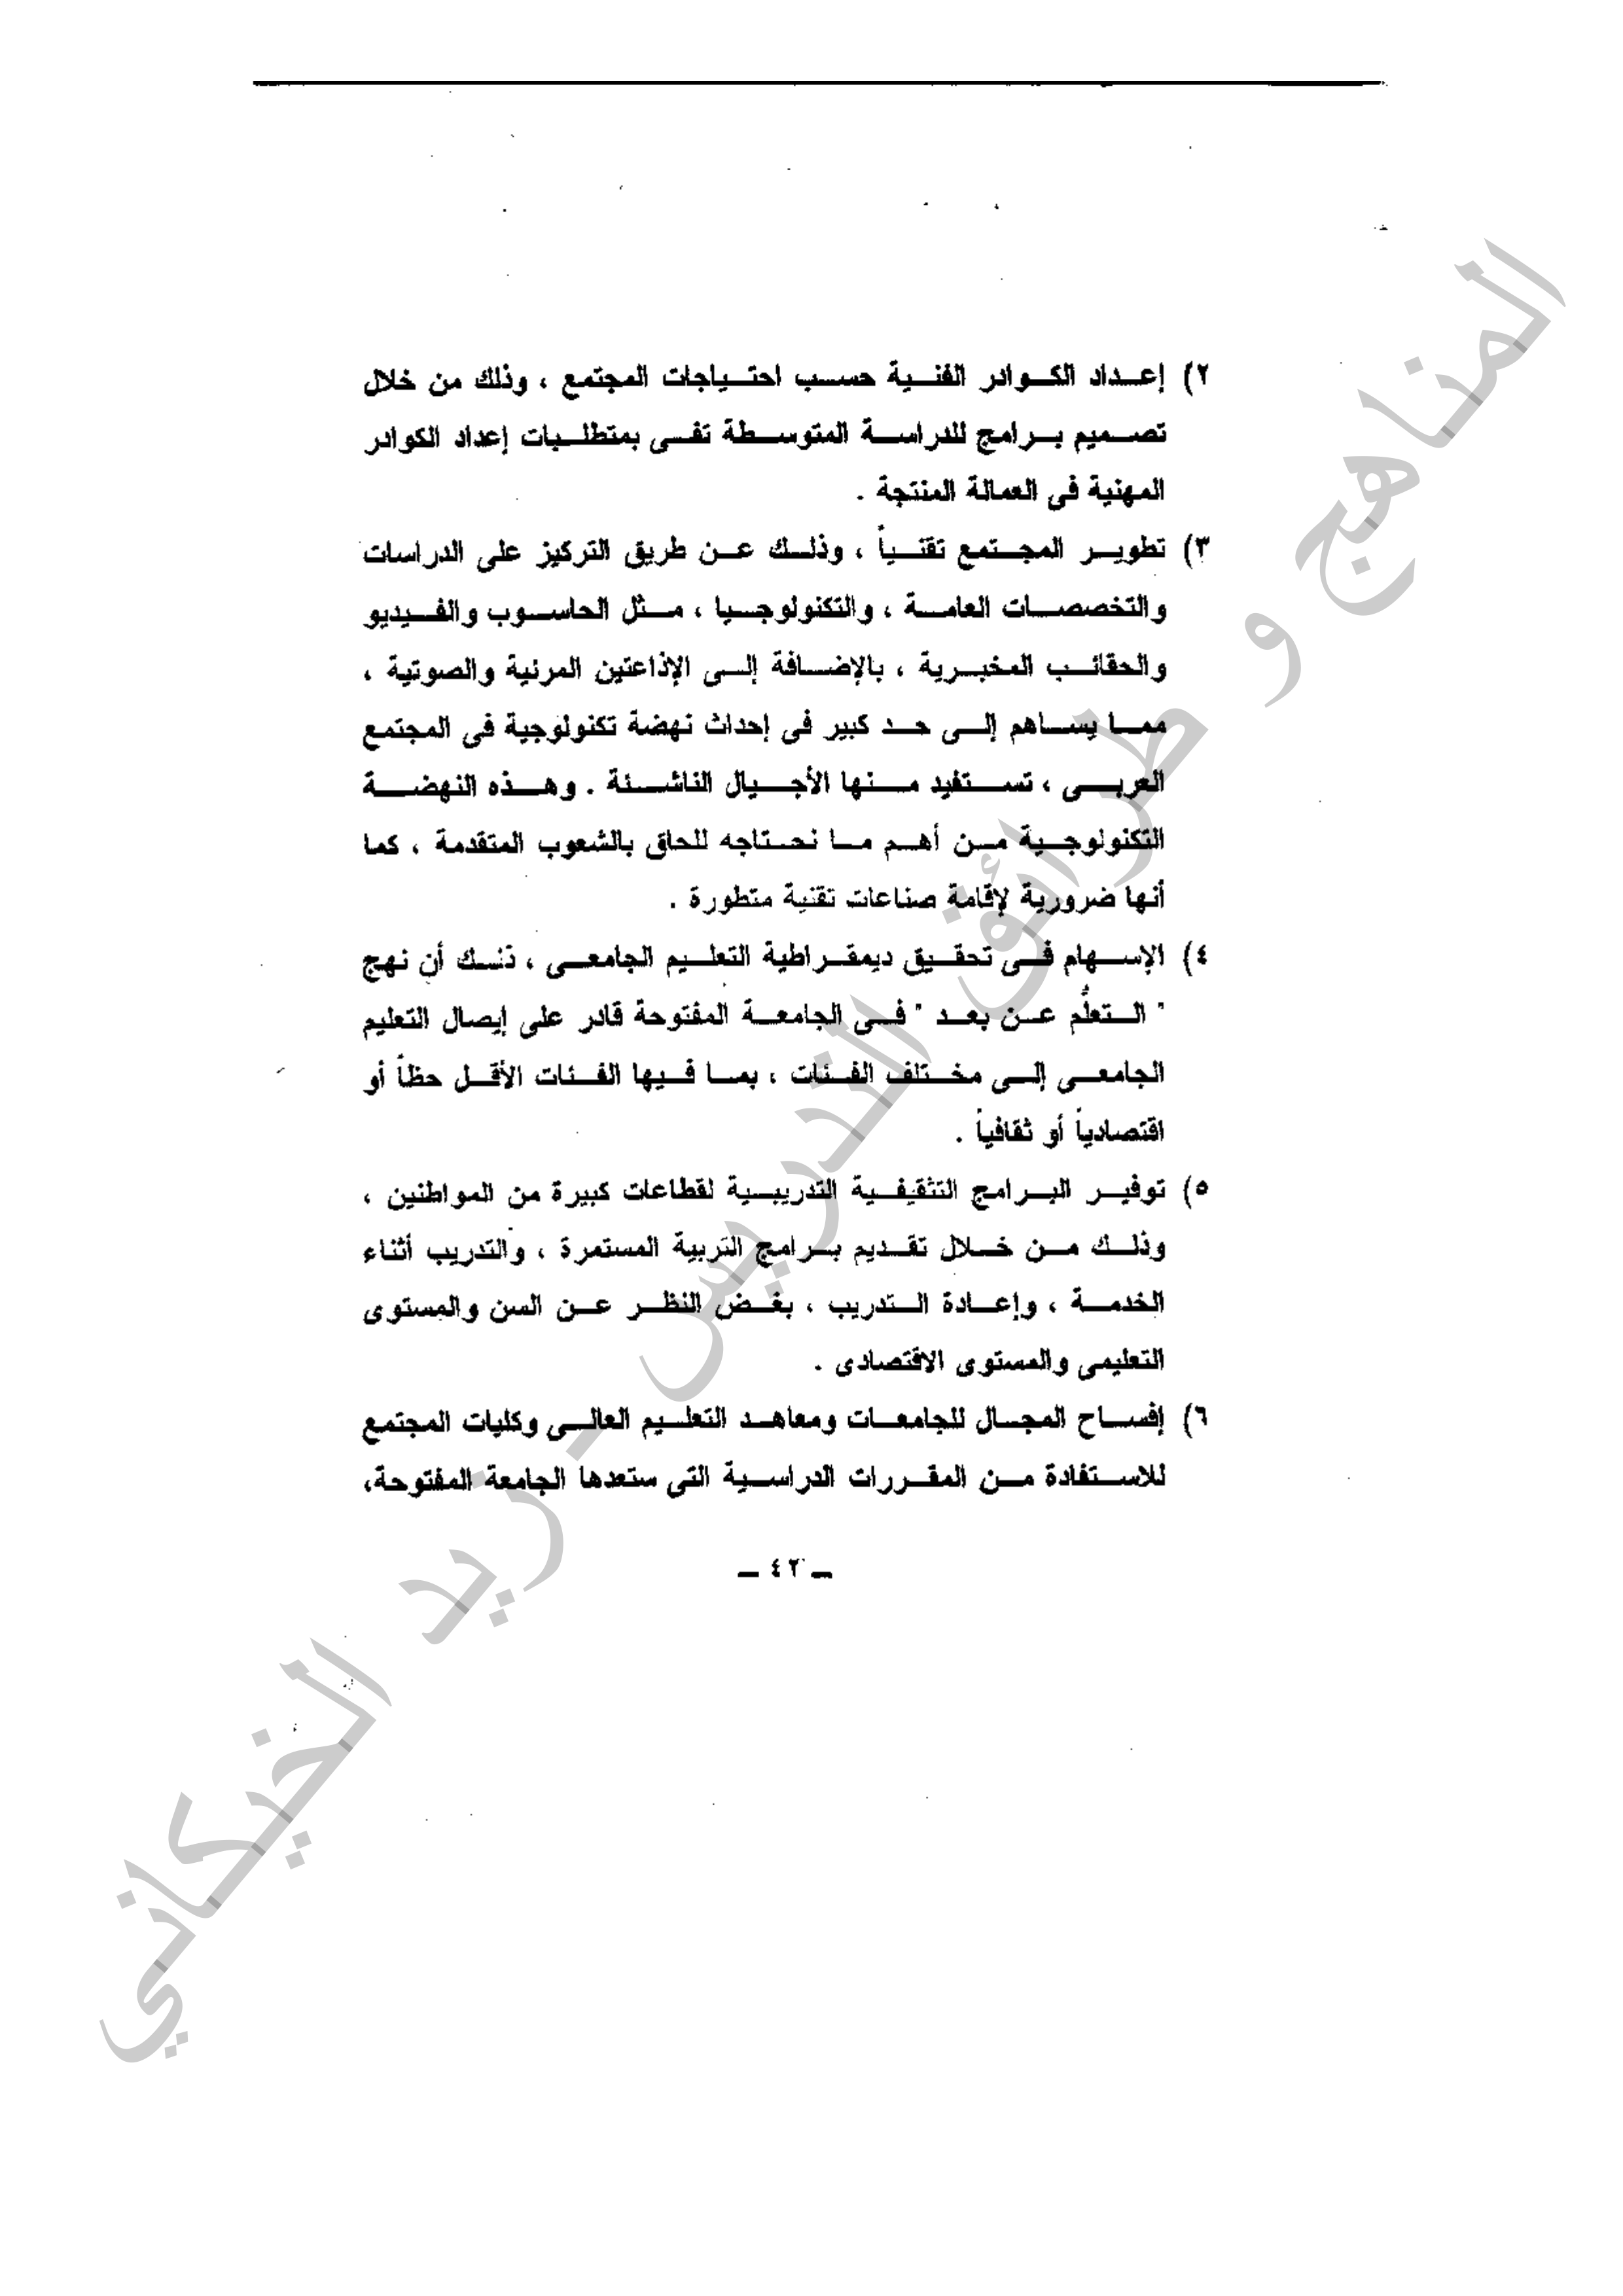 ٢) إعداد الكوادر الفنية حسب احتياجات المجتمع ، وذلك من خلال
تصميم برامج للدراسة المتوسطة تفى بمتطلبات إعداد الكوادر
المهنية فى العمالة المنتجة .
٣) تطوير المجتمع تقنياً ، وذلك عن طريق التركيز على الدراسات
والتخصصات العامة ، والتكنولوجيا ، مثل الحاسوب والفيديو
والحقائب المخبرية ، بالإضافة إلى الإذاعتين المرئية والصوتية ،
مما يساهم إلى حد كبير فى إحداث نهضة تكنولوجية فى المجتمع
العربى ، تستفيد منها الأجيال الناشئة . وهذه النهضة
التكنولوجية من أهم ما نحتاجه للحاق بالشعوب المتقدمة ، كما
أنها ضرورية لإقامة صناعات تقنية متطورة .
٤) الإسهام فى تحقيق ديمقراطية التعليم الجامعى ، ذلك أن نهج
" التعلُّم عن بعد " فى الجامعة المفتوحة قادر على إيصال التعليم
الجامعى إلى مختلف الفئات ، بما فيها الفئات الأقل حظاً أو
اقتصادياً أو ثقافياً .
٥) توفير البرامج التثقيفية التدريبية لقطاعات كبيرة من المواطنين ،
وذلك من خلال تقديم برامج التربية المستمرة ، والتدريب أثناء
الخدمة ، وإعادة التدريب ، بغض النظر عن السن والمستوى
التعليمى والمستوى الاقتصادى .
٦) إفساح المجال للجامعات ومعاهد التعليم العالى وكليات المجتمع
للاستفادة من المقررات الدراسية التى ستعدها الجامعة المفتوحة،
ــ ٤٢ ــ
المناهج و طرائق التدريس - زيد الخيكاني